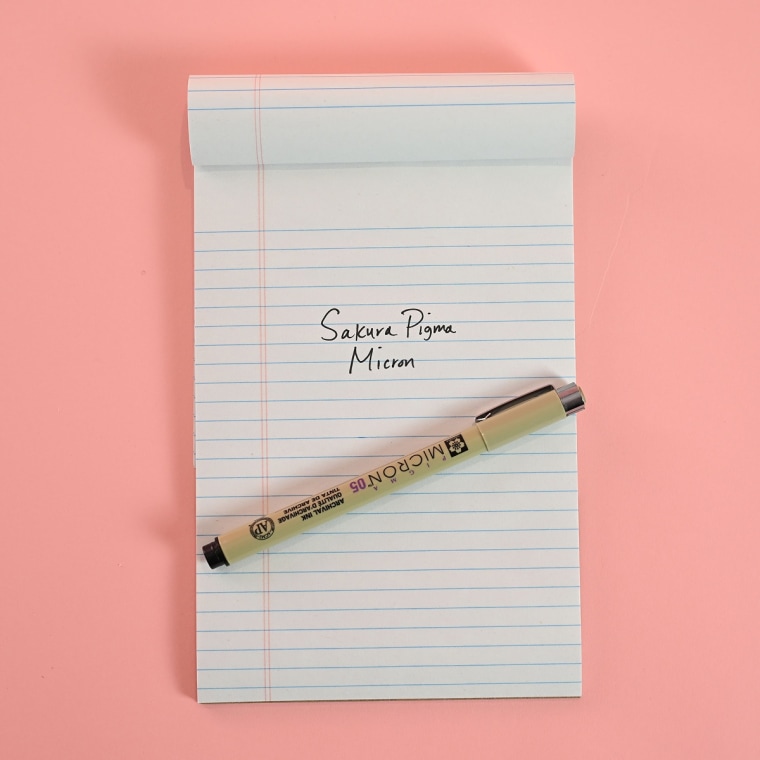 Sakura Pigma
Micron
PIGMA
MICRON 05
ARCHIVAL INK
QUALITÉ D'ARCHIVAGE
TINTA DE ARCHIVE
AP